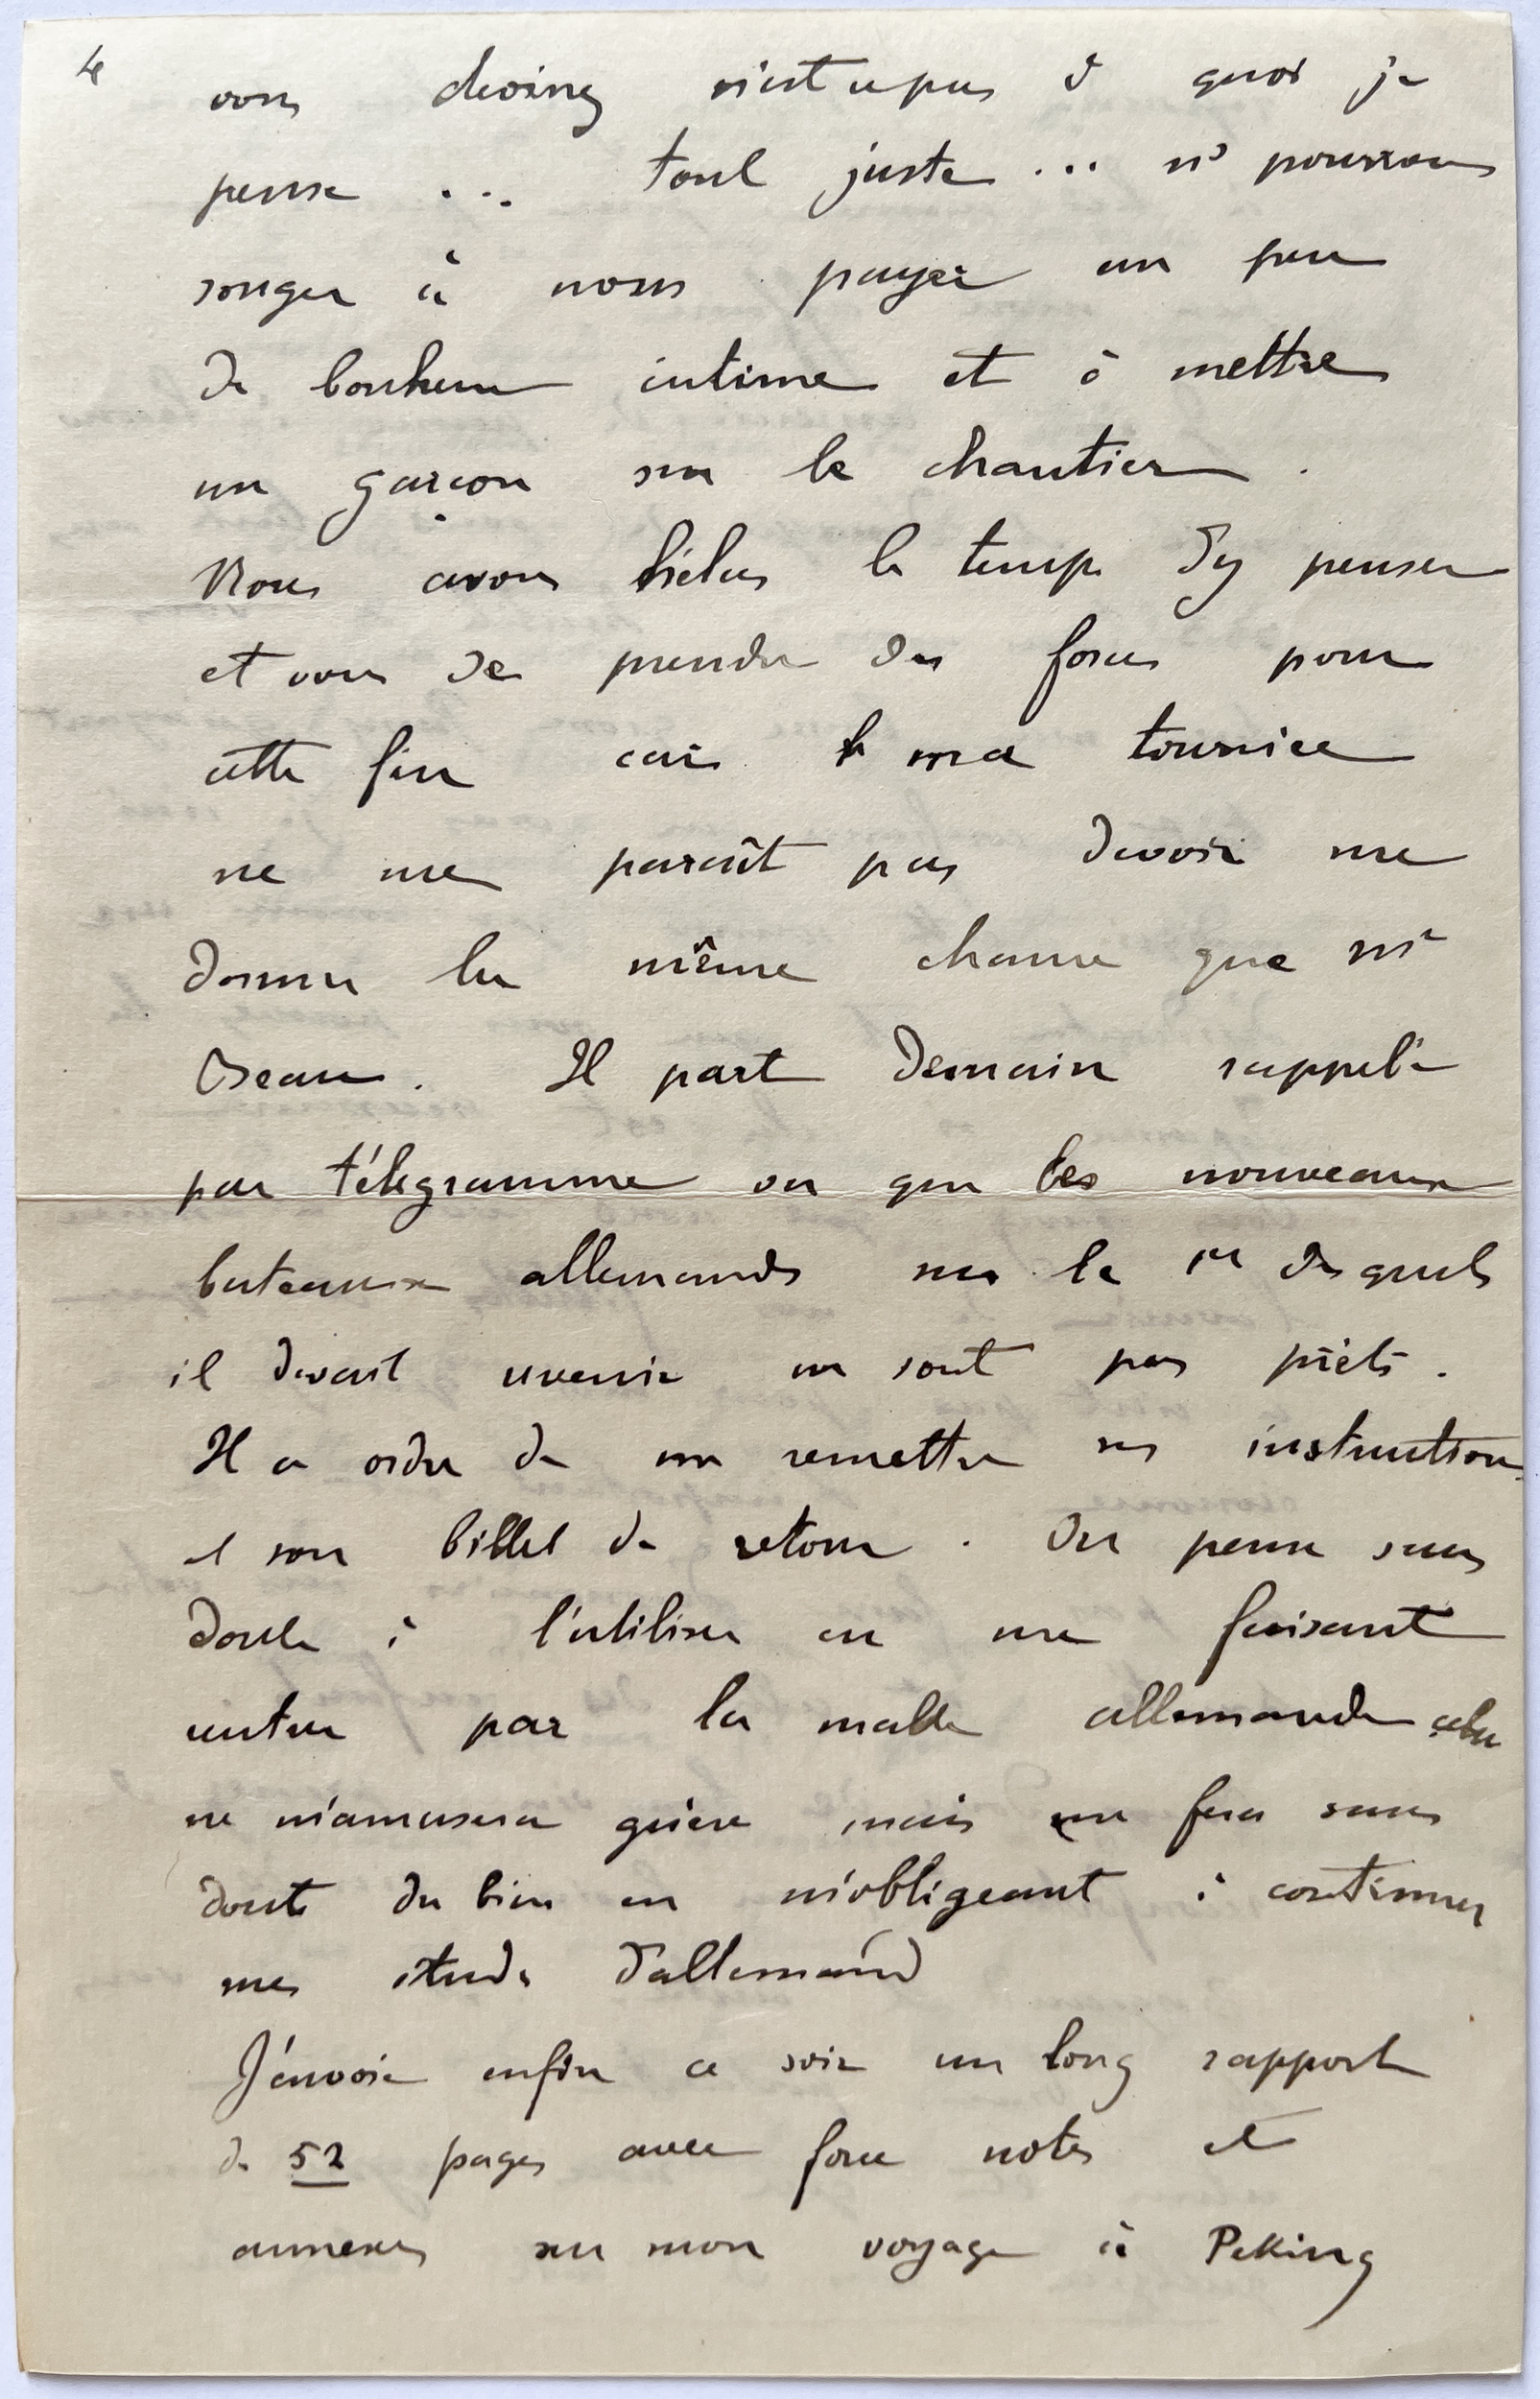 4
vous devinez n'est ce pas à quoi je
pense ... tout juste ... ns pourrons
songer à nous payer un peu
de bonheur intime et à mettre
un garçon sur le chantier.
Nous avons hélas le temps d'y penser
et vous de prendre des forces pour
cette fin car ma tournée
ne me paraît pas devoir me
donner la même chance que Mr
Beau. Il part demain rappelé
par télégramme vu que les nouveaux
bateaux allemands sur le 1er desquels
il devait revenir ne sont pas prêts.
Il a ordre de me remettre ses instructions
et son billet de retour. On pense sans
doute à l'utiliser en me faisant
rentrer par la malle allemande cela
ne m'amusera guère mais me fera sans
doute du bien en m'obligeant à continuer
mes études d'allemand
J'envoie enfin ce soir un long rapport
de 52 pages avec force notes et
annexes sur mon voyage à Peking